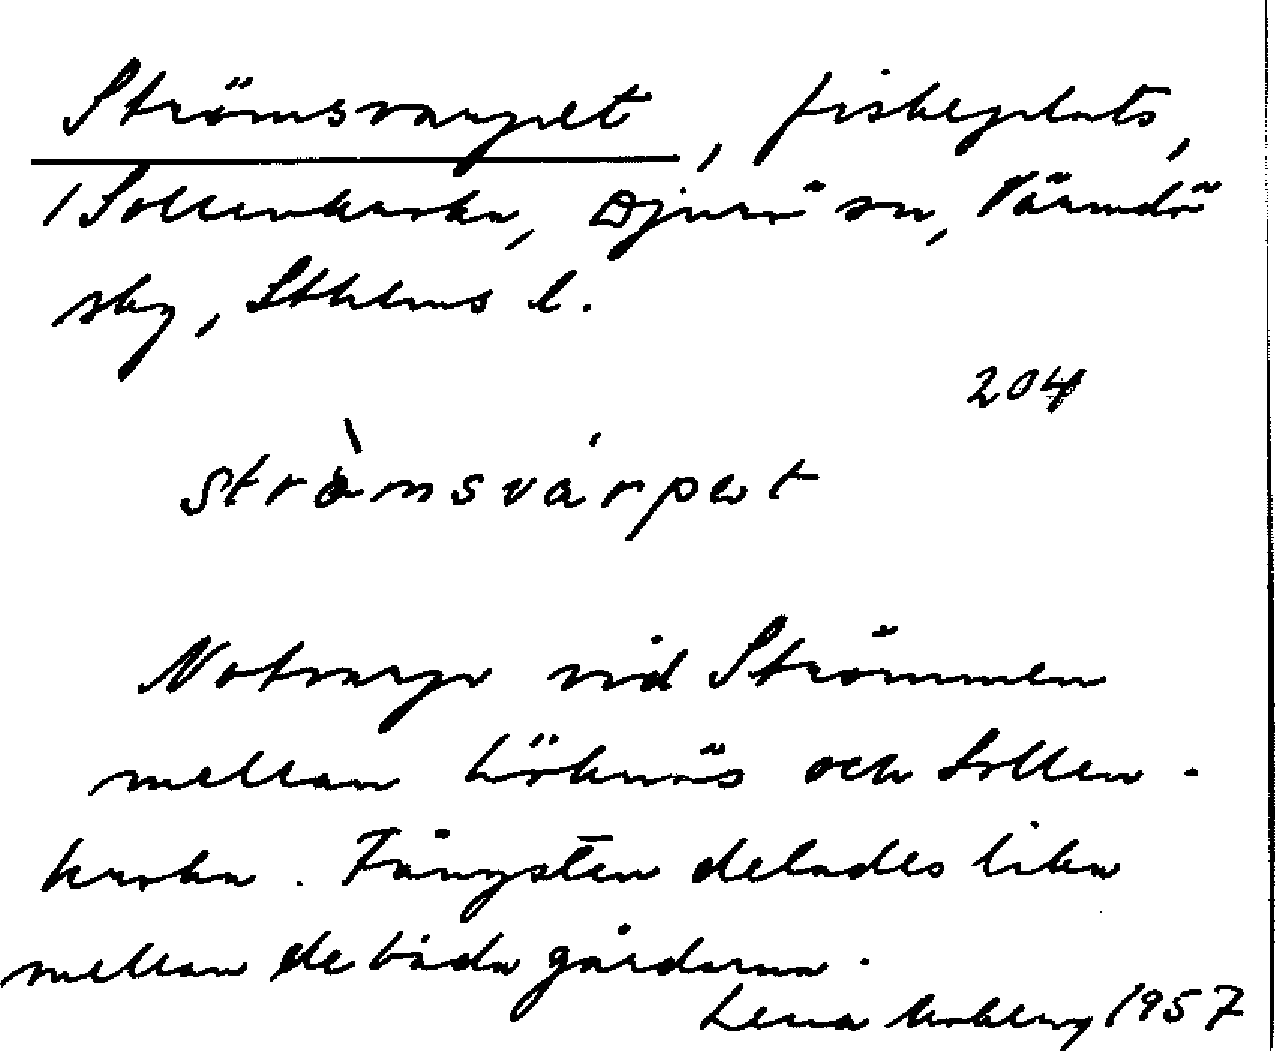 Strömsvarpet, fiskeplats,
/Sollenkroka, Djurö sn, Värmdö
skg, Sthlms l.
204
strömsvárpet
Notvarp vid Strömmen
mellan Löknäs och Sollen-
kroka. Fångsten delades lika
mellan de båda gårdarna.
Lena Moberg 1957